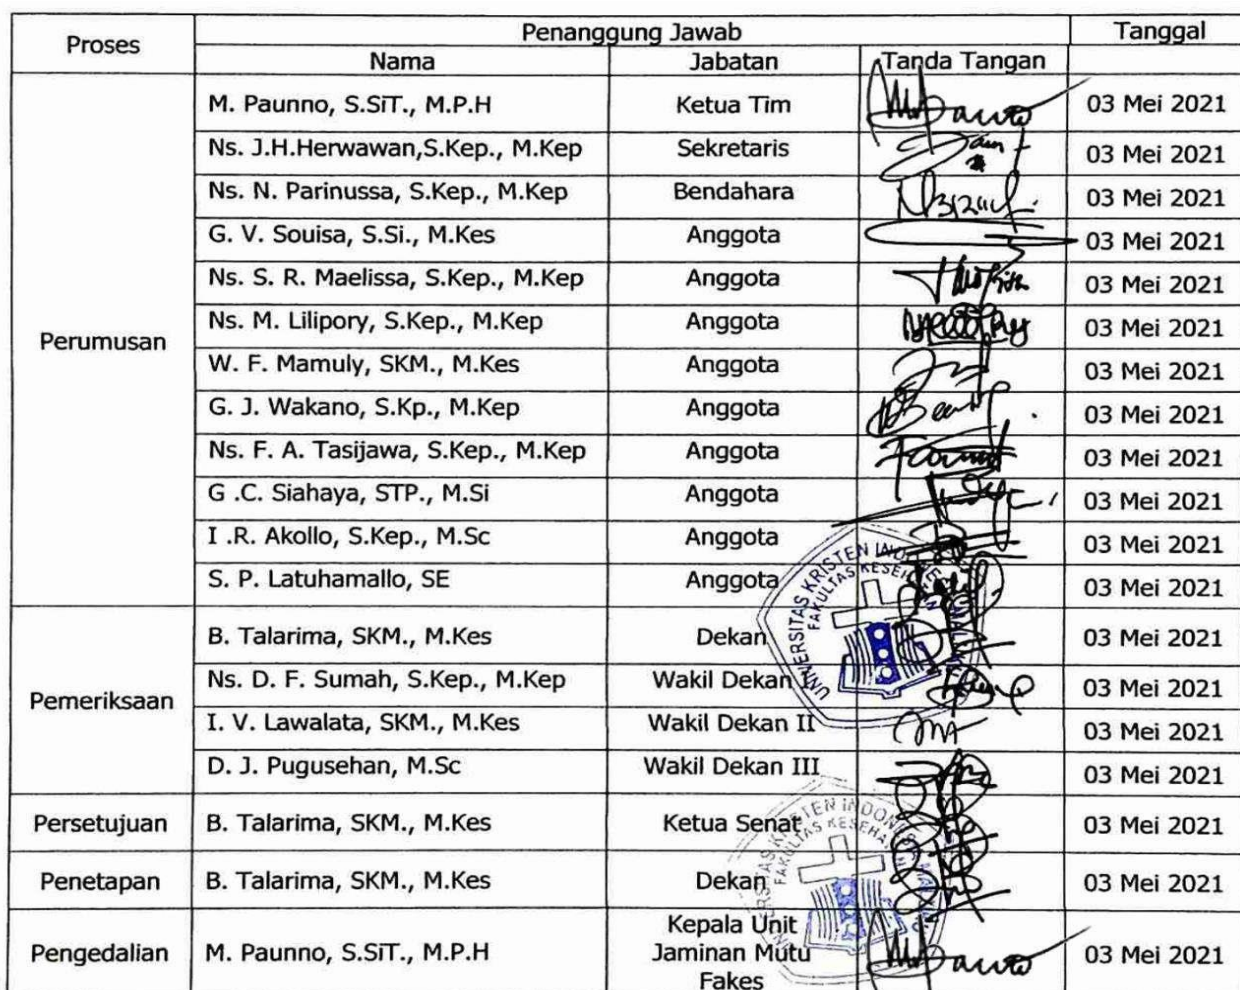 Proses Penanggung Jawab Tanggal
Nama Jabatan Tanda Tangan
M. Paunno, S.SiT., M.P.H Ketua Tim 03 Mei 2021
Ns. J.H.Herwawan,S.Kep., M.Kep Sekretaris 03 Mei 2021
Ns. N. Parinussa, S.Kep., M.Kep Bendahara 03 Mei 2021
G. V. Souisa, S.Si., M.Kes Anggota 03 Mei 2021
Ns. S. R. Maelissa, S.Kep., M.Kep Anggota 03 Mei 2021
Perumusan Ns. M. Lilipory, S.Kep., M.Kep Anggota 03 Mei 2021
W. F. Mamuly, SKM., M.Kes Anggota 03 Mei 2021
G. J. Wakano, S.Kp., M.Kep Anggota 03 Mei 2021
Ns. F. A. Tasijawa, S.Kep., M.Kep Anggota 03 Mei 2021
G .C. Siahaya, STP., M.Si Anggota 03 Mei 2021
I .R. Akollo, S.Kep., M.Sc Anggota 03 Mei 2021
S. P. Latuhamallo, SE Anggota 03 Mei 2021
UNIVERSITAS KRISTEN INDONESIA MALUKU
FAKULTAS KESEHATAN
B. Talarima, SKM., M.Kes Dekan 03 Mei 2021
Pemeriksaan Ns. D. F. Sumah, S.Kep., M.Kep Wakil Dekan 03 Mei 2021
I. V. Lawalata, SKM., M.Kes Wakil Dekan II 03 Mei 2021
D. J. Pugusehan, M.Sc Wakil Dekan III 03 Mei 2021
Persetujuan B. Talarima, SKM., M.Kes Ketua Senat 03 Mei 2021
UNIVERSITAS KRISTEN INDONESIA MALUKU
FAKULTAS KESEHATAN
Penetapan B. Talarima, SKM., M.Kes Dekan 03 Mei 2021
Pengedalian M. Paunno, S.SiT., M.P.H Kepala Unit 03 Mei 2021
Jaminan Mutu
Fakes